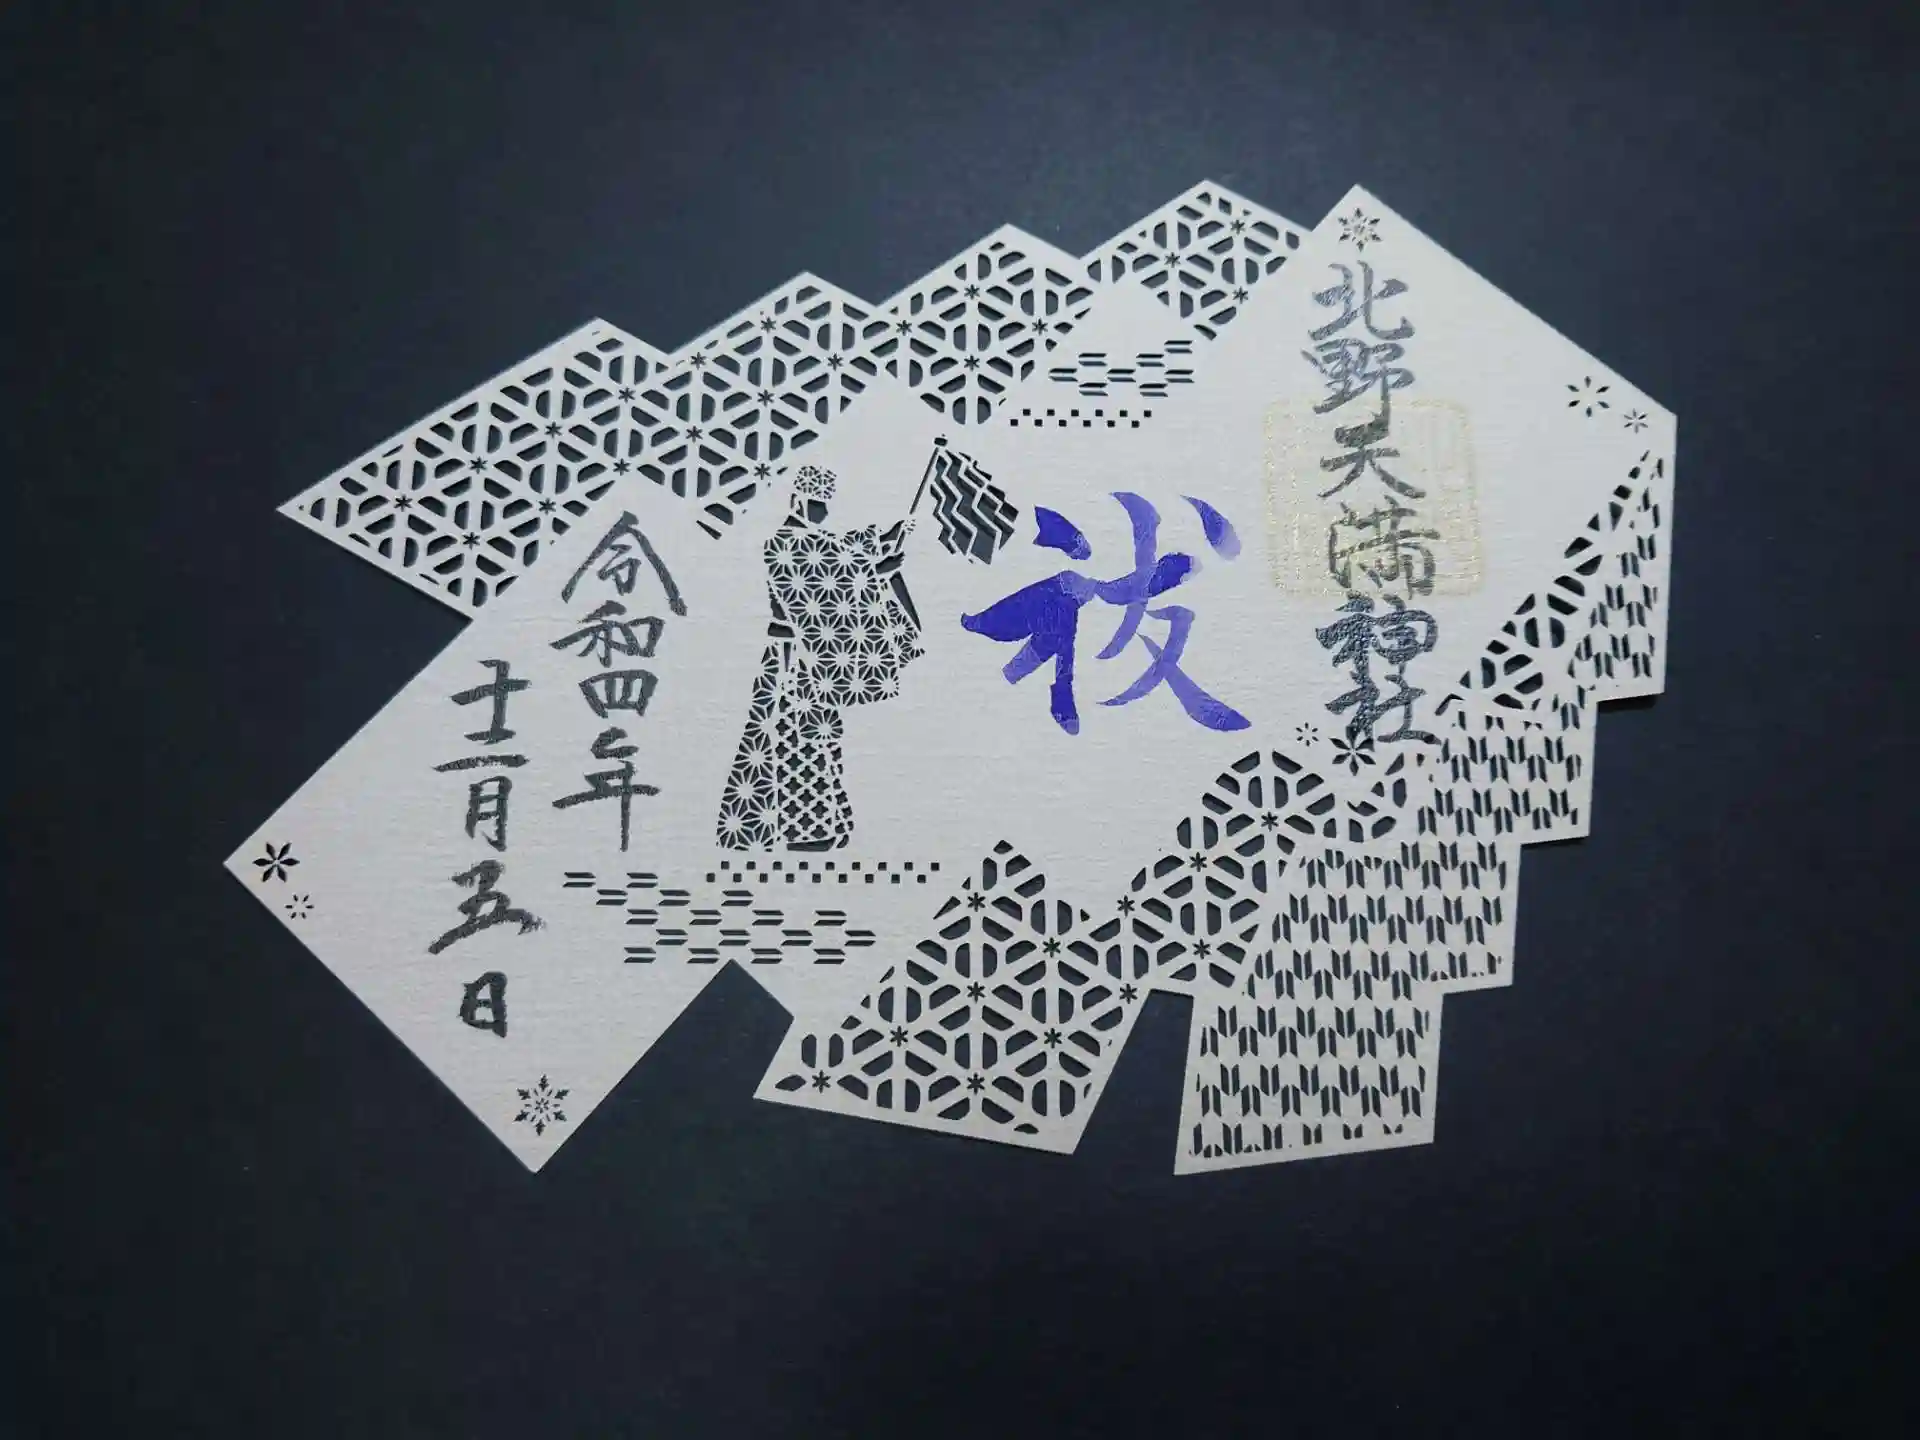 北野天満神社
祓
令和四年
十二月五日